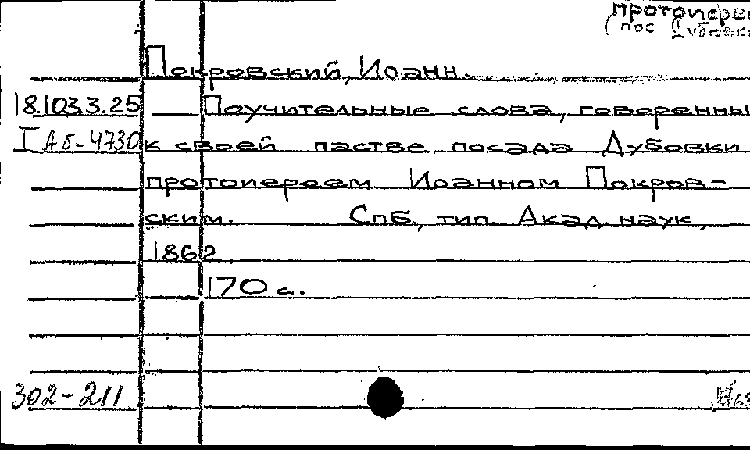 протоиерей
(пос Дубовки
Покровский, Иоанн.
18.103.3.25 Поучительные слова, говоренны
I Аб-4730 к своей пастве посада Дубовки
протоиереем Иоанном Покров-
ским. СПБ, тип. Акад. наук,
1862.
170 с.
302-211